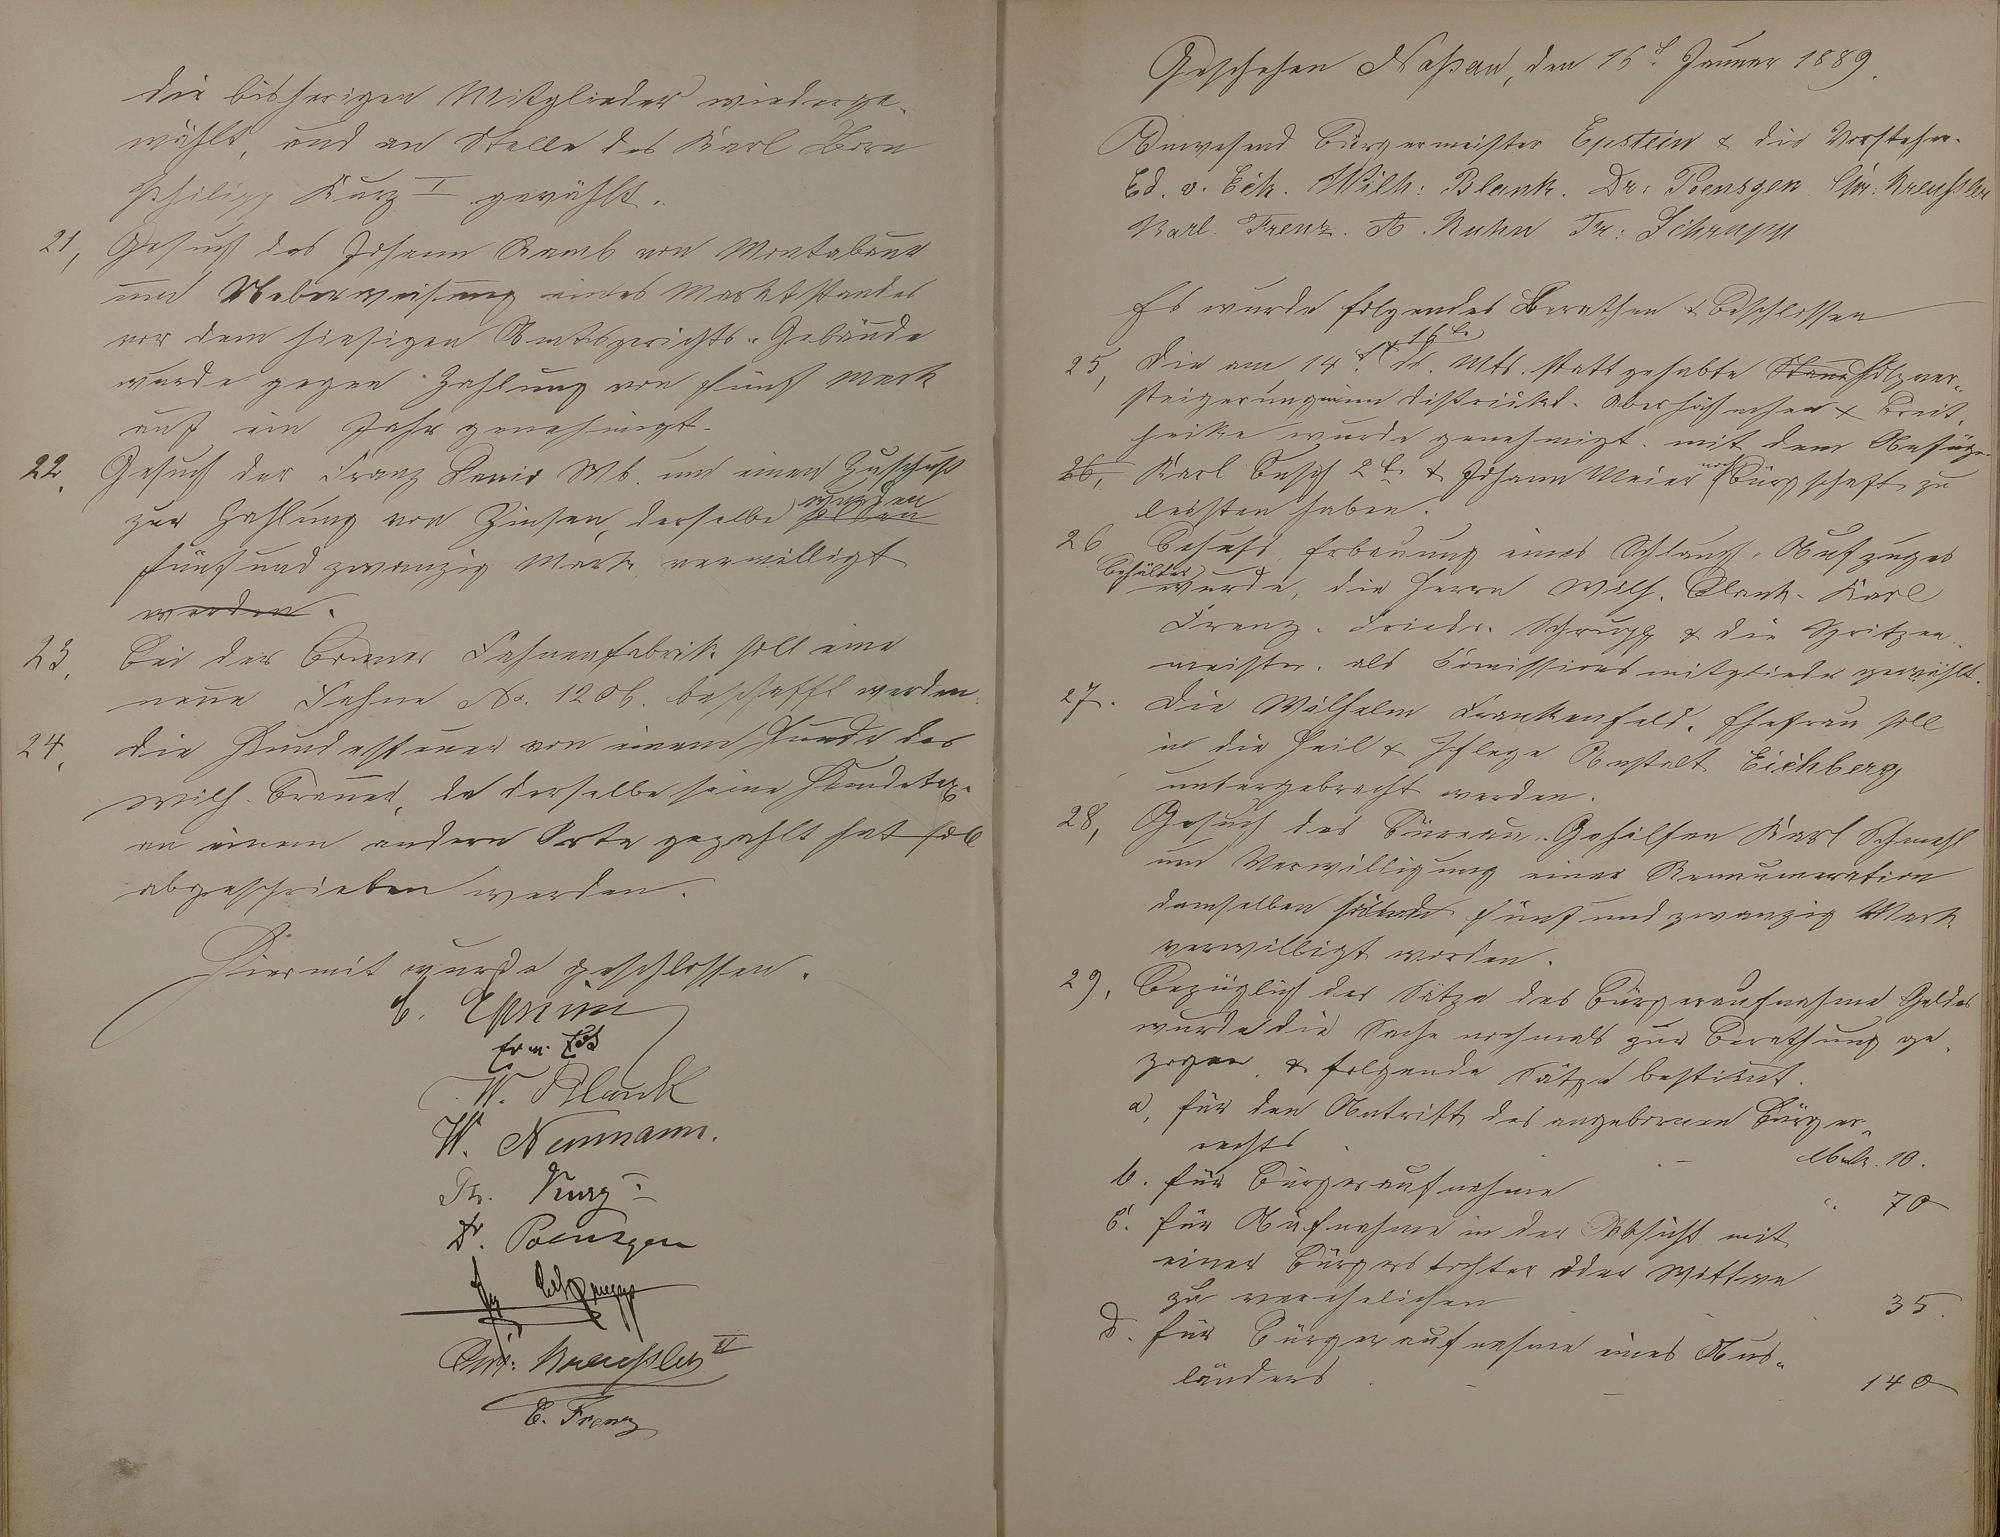 die bisherigen Mitglieder wiederge-
wählt, und an Stelle des Karl Born
Philipp Kurz I gewählt.
21, Gesuch des Johann Remb von Montabaur
um Ueberweisung eines Marktstandes
vor dem hiesigen Amtsgerichts-Gebäude
wurde gegen Zahlung von fünf Mark
auf ein Jahr genehmigt.
22. Gesuch der Franz Wb. um einen Zuschuß
wurden
zur Zahlung von Zinsen, derselbe sollen
fünf und zwanzig Mark verwilligt
werden.
23. Bei der Bonner Fahnenfabrik soll eine
neue Fahne No. 1206. beschafft werden.
24. Die Hundesteuer von einem Hunde des
Wilh. Bremer, da derselbe seine Hundetax
an einem andern Orte gezahlt hat soll
abgeschrieben werden.
Hiermit wurde geschlossen.
C. Epstein
W. Blank
W. Neumann.
Ph. Kurz I
Dr. Poensgen
Fr. Schrupp
Chr: Kreußler II
C. Frenz
Geschehen Naßau, den 15t. Januar 1889.
Anwesend Bürgermeister Epstein & die Vorsteher.
Ed. v. Eck. Wilh: Blank. Dr: Poensgen Chr: Kreußler
Karl. Frenz. A. Kuhn Fr: Schrupp
Es wurde folgendes Berathen & Beschlossen
& 15te
25, Die am 14t. d. Mts. stattgehabte Holzver-
steigerung im Distrikt. Oberhähnchen & Breit
heike wurde genehmigt. mit dem Anfügen
26, Karl Busch 2t. & Johann Meier noch Bürgschaft zu
leisten haben.
26 Behufs Erbauung eines Schlauch-Aufzuges
Behälter
wurde, die Herrn Wilh. Blank. Karl
Frenz. Friedr. Schrupp & die Spritzen-
meister. als Comissionsmitglieder gewählt.
27. Die Wilhelm Frankenfeld. Ehefrau soll
in die Heil & Pflege Anstalt Eichberg
untergebracht werden.
28, Gesuch des Büreau-Gehilfen Karl Schmehl
um Verwilligung einer Remumeration
demselben fünf und zwanzig Mark
verwilligt worden.
29, Bezüglich der Sätze des Bürgeraufnahme Geldes
wurde die Sache nochmals zur Berathung ge-
zogen & folgende Sätze bestimt.
a, für den Antritt des angebornen Bürger-
rechts Mark. 10.
b. für Bürgeraufnahme " 70
c. für Aufnahme in der Absicht mit
einer Bürgerstochter oder Wittwe
zu verehelichen 35.
d. für Bürgeraufnahme eines Aus-
länders 140